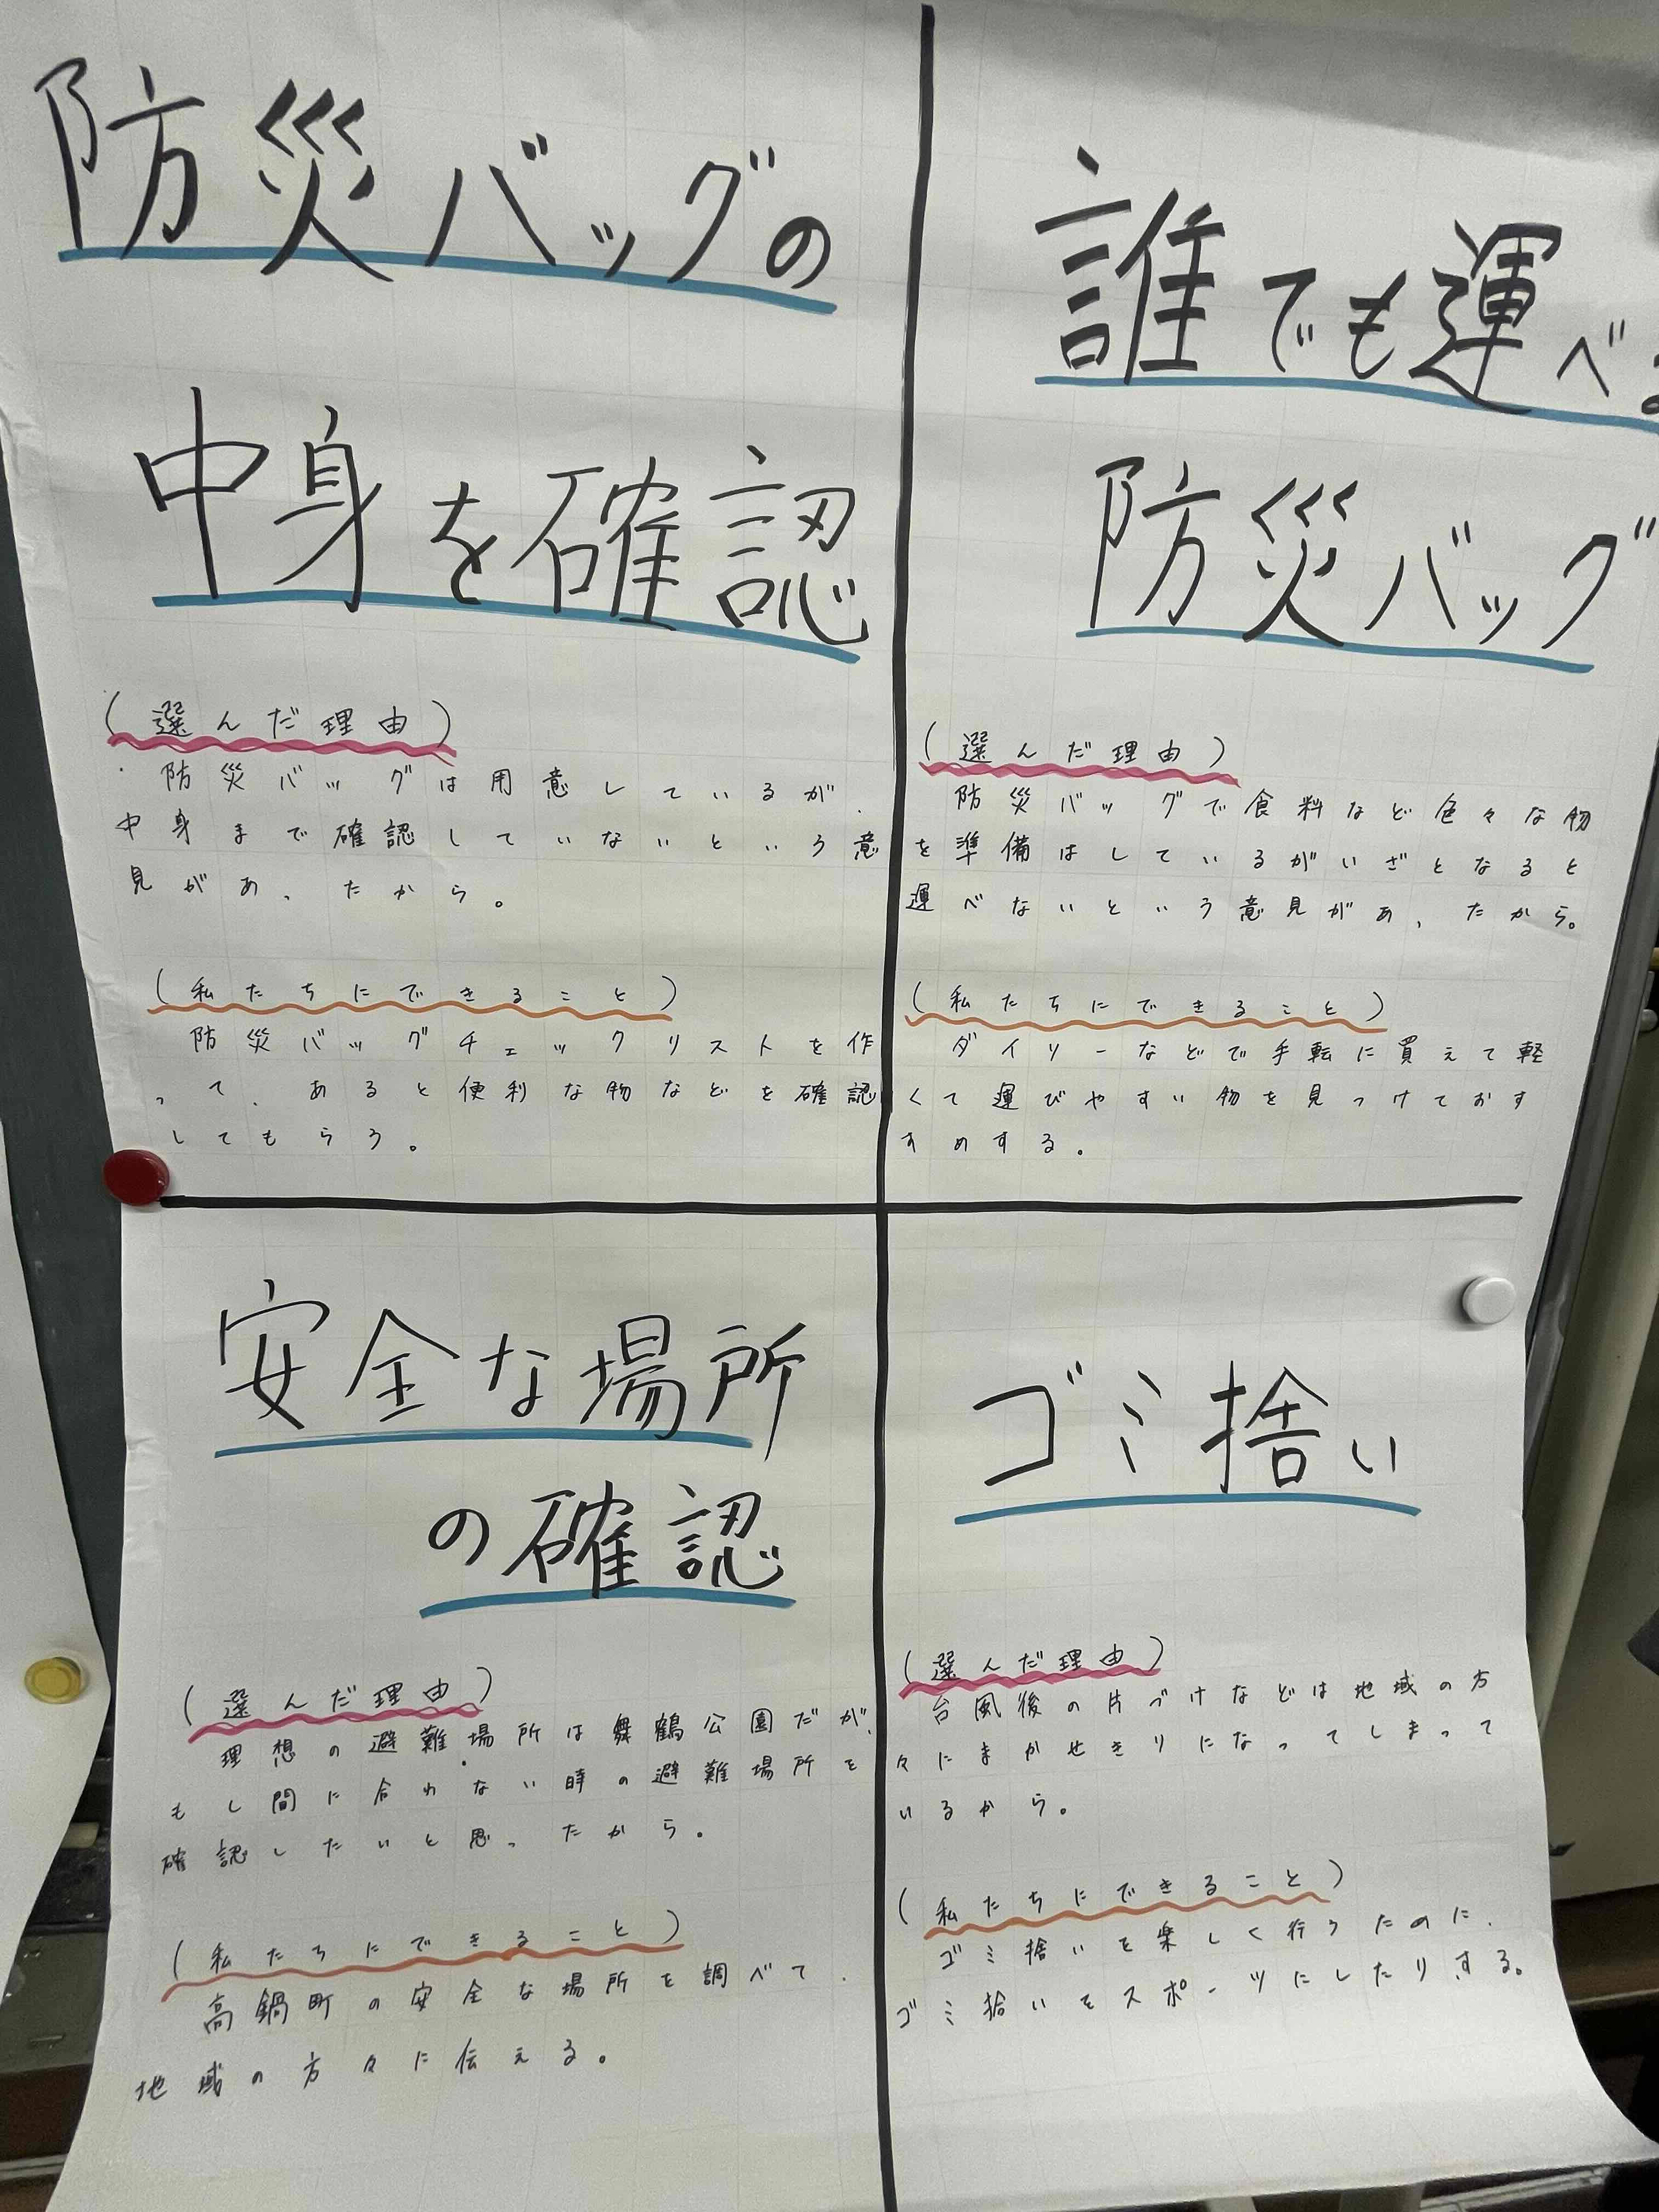 防災バッグの
中身を確認
(選んだ理由)
防災バッグは用意しているが、
中身まで確認していないという意
見があったから。
(私たちにできること)
防災バッグチェックリストを作
って、あると便利な物などを確認
してもらう。
誰でも運べ
防災バッグ
(選んだ理由)
防災バッグで食料など色々な物
を準備はしているがいざとなると
運べないという意見があったから。
(私たちにできること)
ダイソーなどで手転に買えて軽
くて運びやすい物を見つけておす
すめする。
安全な場所
の確認
(選んだ理由)
理想の避難場所は舞鶴公園だが、
もし間に合わない時の避難場所を
確認したいと思ったから。
(私たちにできること)
高鍋町の安全な場所を調べて、
地域の方々に伝える。
ゴミ捨い
(選んだ理由)
台風後の片づけなどは地域の方
々にまかせきりになってしまって
いるから。
(私たちにできること)
ゴミ捨いを楽しく行うために、
ゴミ拾いをスポーツにしたりする。